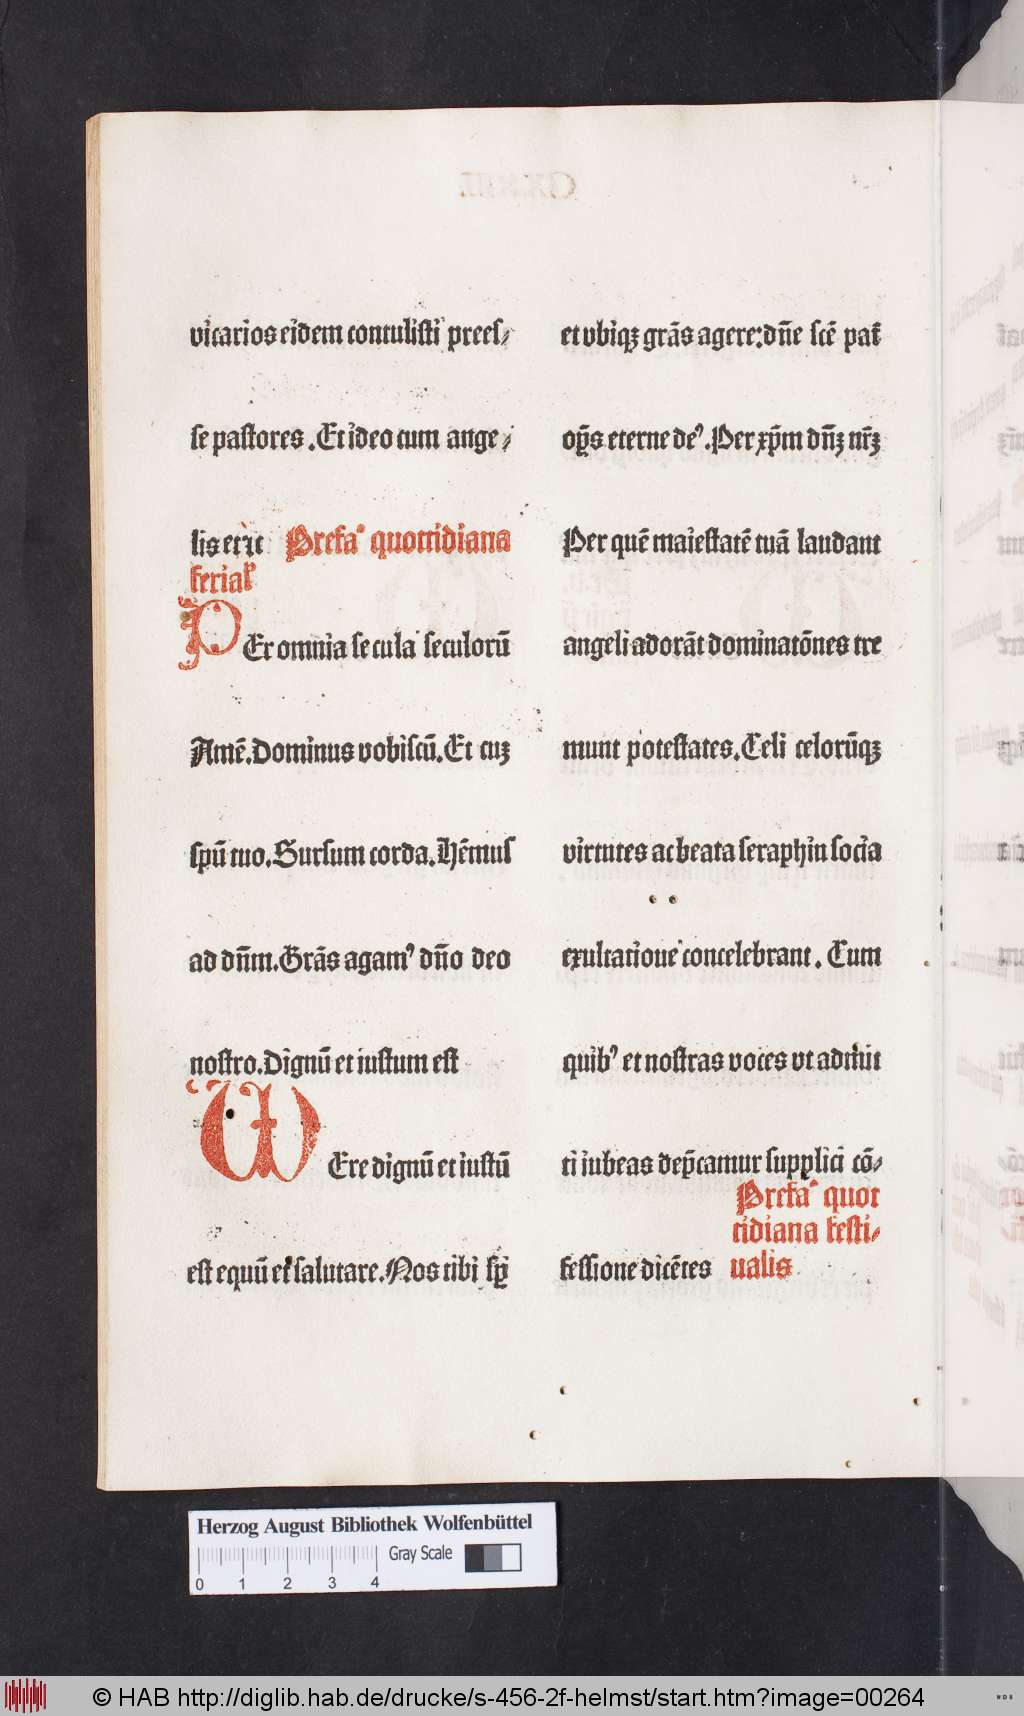 vicarios eidem contulisti prees⸗
se pastores. Et ideo cum ange⸗
lis etc̀ Prefaº quottidiana
ferial'
PEr omnia secula seculorū
Amē. Dominus vobiscū. Et cuʒ
spū tuo. Sursum corda. Hēmus
ad dn̄m. Grās agam⁹ dn̄o deo
nostro. Dignū et iustum est
WEre dignū et iustū
est equū et salutare. Nos tibi sp̄
et vbiqʒ grās agere: dn̄e scē pat̄
op̄s eterne de⁹. Per xp̄m dn̄ʒ nr̄ʒ
Per quē maiestatē tuā laudant
angeli adorāt dominatōnes tre
munt potestates. Celi celorūqʒ
virtutes ac beata seraphin socia
exultatione concelebrant. Cum
quib⁹ et nostras voces vt admit
ti iubeas dep̄camur supplici cō⸗
Prefaº quot
tidiana festi⸗
ualis
fessione dicētes
Herzog August Bibliothek Wolfenbüttel
Gray Scale
0 1 2 3 4
© HAB http://diglib.hab.de/drucke/s-456-2f-helmst/start.htm?image=00264